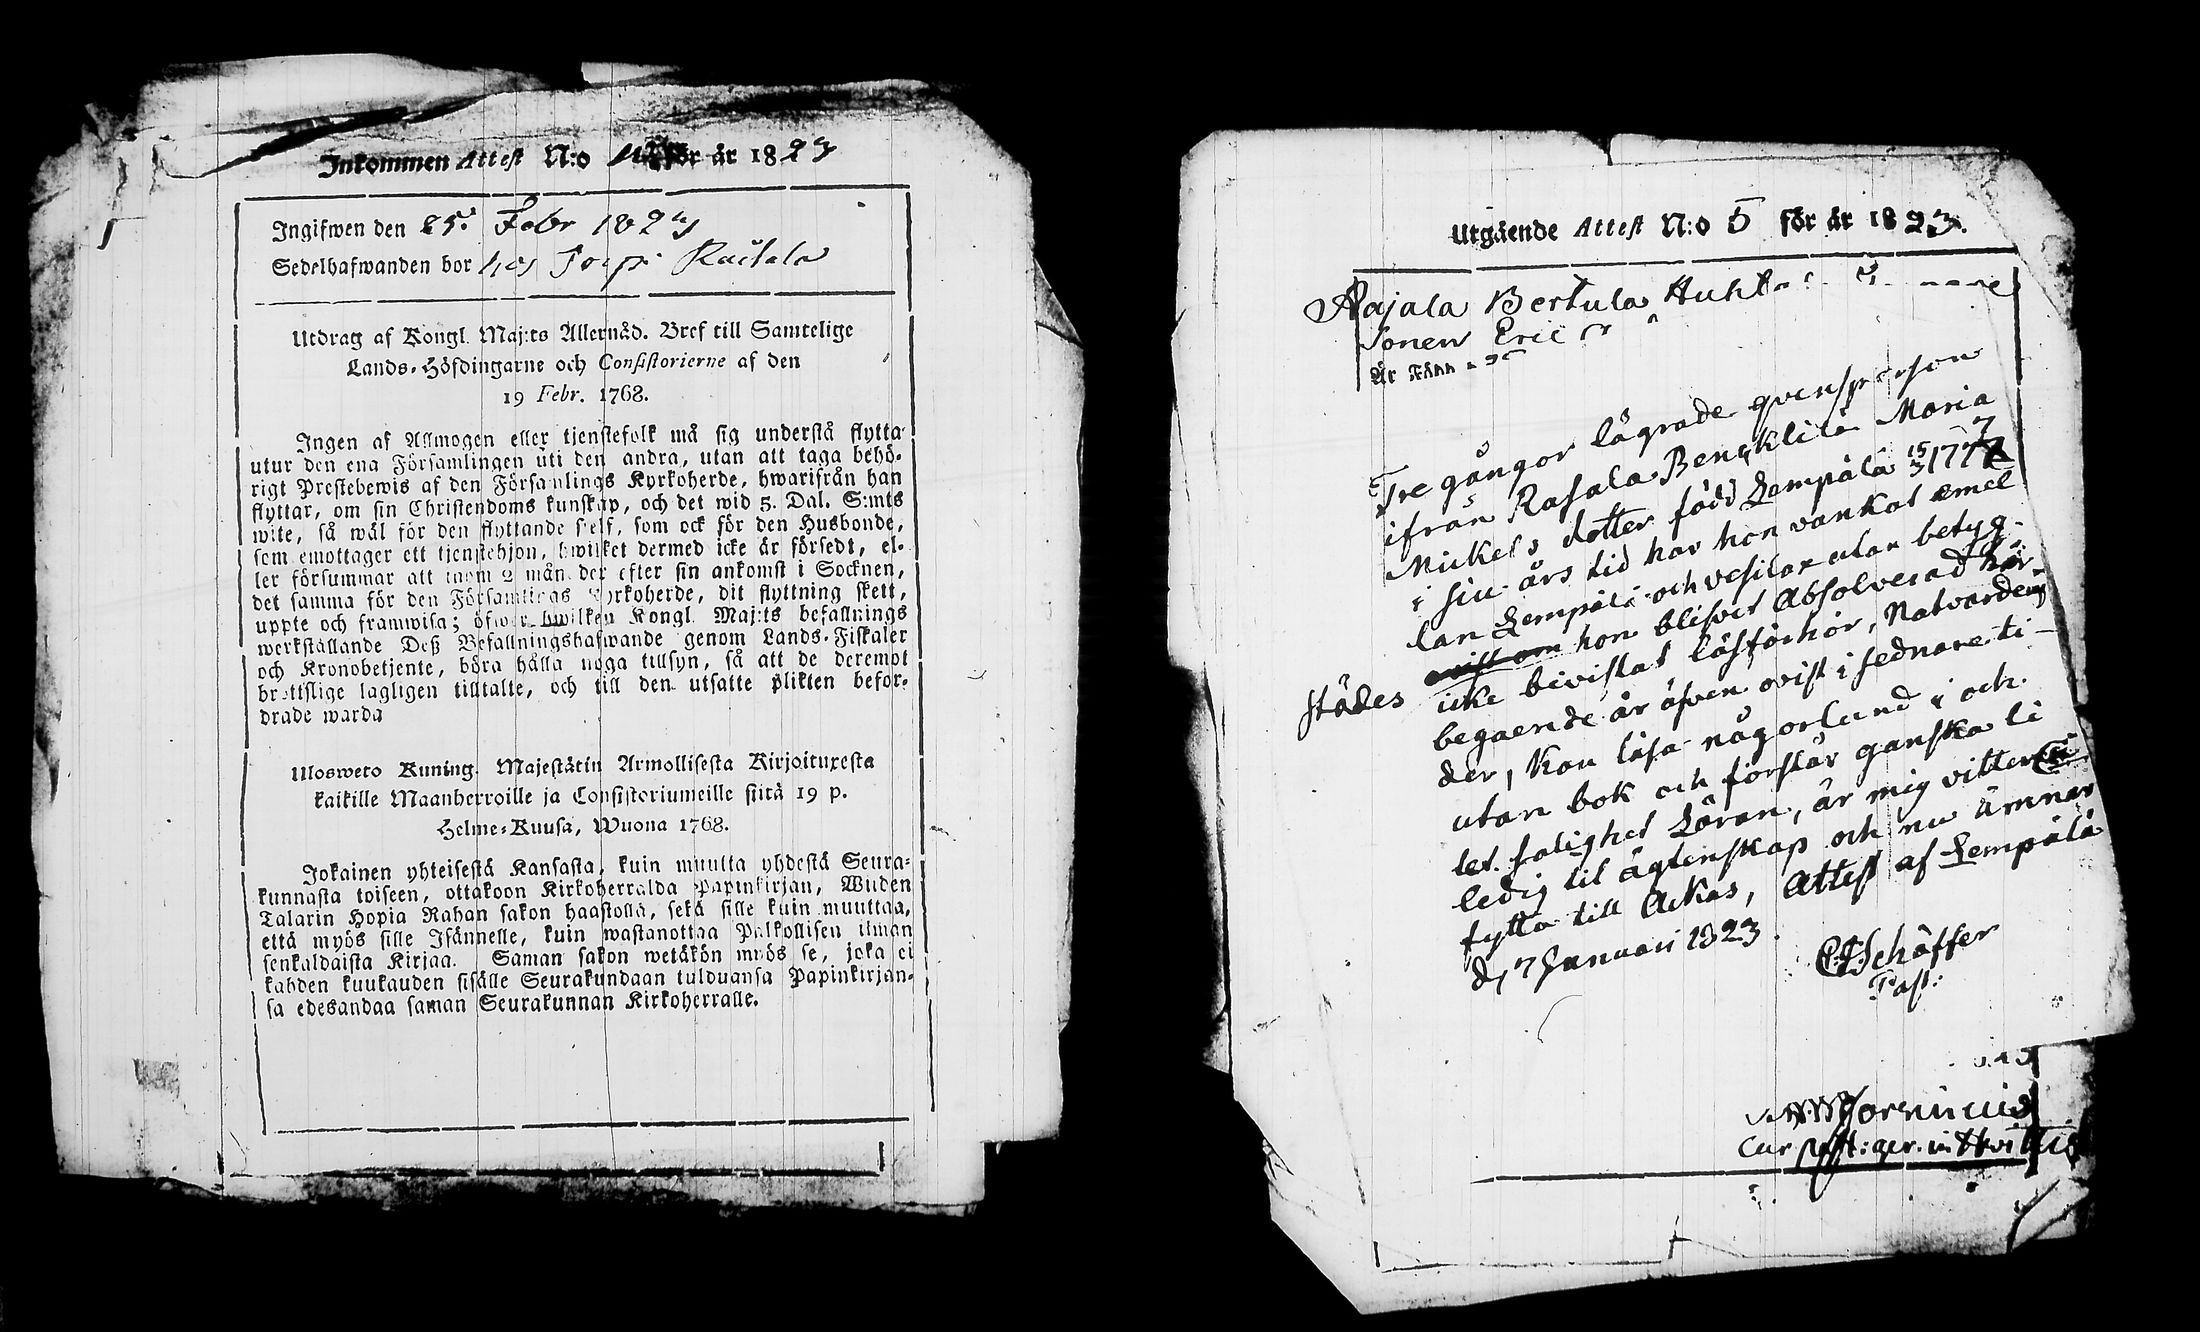 Inkommen Attest N:o för år 1823
Ingifwen den 25. Febr 1823
Sedelhafwanden bor hos
Utdrag af Kongl. Maj:ts Allernåd. Bref till Samtelige
Lands-Höfdingarne och Consistorierne af den
19 Febr. 1768.
Ingen af Allmogen eller tjenstefolk må sig understå flytta
utur den ena Församlingen uti den andra, utan att taga behö-
rigt Prestebewis af den Församlings Kyrkoherde, hwarifrån han
flyttar, om sin Christendoms kunskap, och det wid 5. Dal. S:mts
wite, så wäl för den flyttande sielf, som ock för den Husbonde,
som emottager ett tjenstehjon, hwilket dermed icke är försedt, el-
ler försummar att inom 2 månader efter sin ankomst i Socknen,
det samma för den Församlings Kyrkoherde, dit flyttning skett,
uppte och framwisa; öfwer hwilken Kongl. Maj:ts befallnings
werkställande Deß Befallningshafwande genom Lands-Fiskaler
och Kronobetjente, böra hålla noga tillsyn, så att de deremot
brottslige lagligen tilltalte, och till den utsatte plikten befor-
drade warda
Ulosweto Kuning. Majestätin Armollisesta Kirjoituxesta
kaikille Maanherroille ja Consistoriumeille siitä 19 p.
Helme-Kuusa, Wuona 1768.
Jokainen yhteisestä Kansasta, kuin muutta yhdestä Seura-
kunnasta toiseen, ottakoon Kirkoherralda Papinkirjan, Wiiden
Talarin Hopia Rahan sakon haastolla, sekä sille kuin muuttaa,
että myös sille Isännelle, kuin wastanottaa Palkollisen ilman
senkaldaista Kirjaa. Saman sakon wetäkön myös se, joka ei
kahden kuukauden sisälle Seurakundaan tulduansa Papinkirjan-
sa edesandaa saman Seurakunnan Kirkoherralle.
Utgående Attest N:o 5 för år 1823.
Rajala Bertula
Sonen Eric
År
Tre gångor lägrade qvensperson
ifrån Rasala Bengklilä Maria
Mickels dotter född Lempälä 15/3 1777
i siu års tid har hon vankat emel
lan Lempälä och vesilax utan betyg.
hon blifvit Absolverad här-
städes icke bevistat läsförhör, Natvardens
begaende är äfven ovist i sednare ti-
der, kan läsa någorlund i och
utan bok och förstår ganska li
tet. salighet Läran, är mig vitterligen
ledig til ägtenskap och nu ämnar
fytta till Ackas, Attest af Lempälä
d, 7 Januari 1823.
Schäffer
Past:
Cur past: ger. in Hvittis